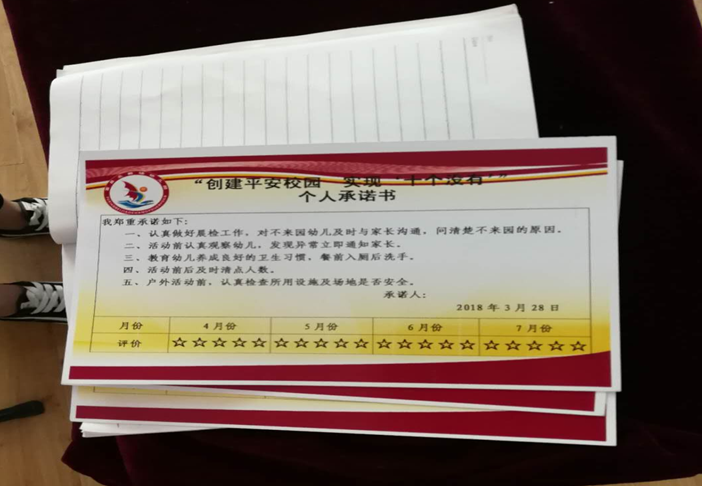 “创建平安校园 实现“十个没有””
个人承诺书
我郑重承诺如下:
一、认真做好晨检工作,对不来园幼儿及时与家长沟通,问清楚不来园的原因。
二、活动前认真观察幼儿,发现异常立即通知家长。
三、教育幼儿养成良好的卫生习惯,餐前入厕后洗手。
四、活动前后及时清点人数。
五、户外活动前,认真检查所用设施及场地是否安全。
承诺人:
2018 年 3 月 28 日
月份 4 月份 5 月份 6 月份 7 月份
评价 ☆☆☆☆☆ ☆☆☆☆☆ ☆☆☆☆☆ ☆☆☆☆☆